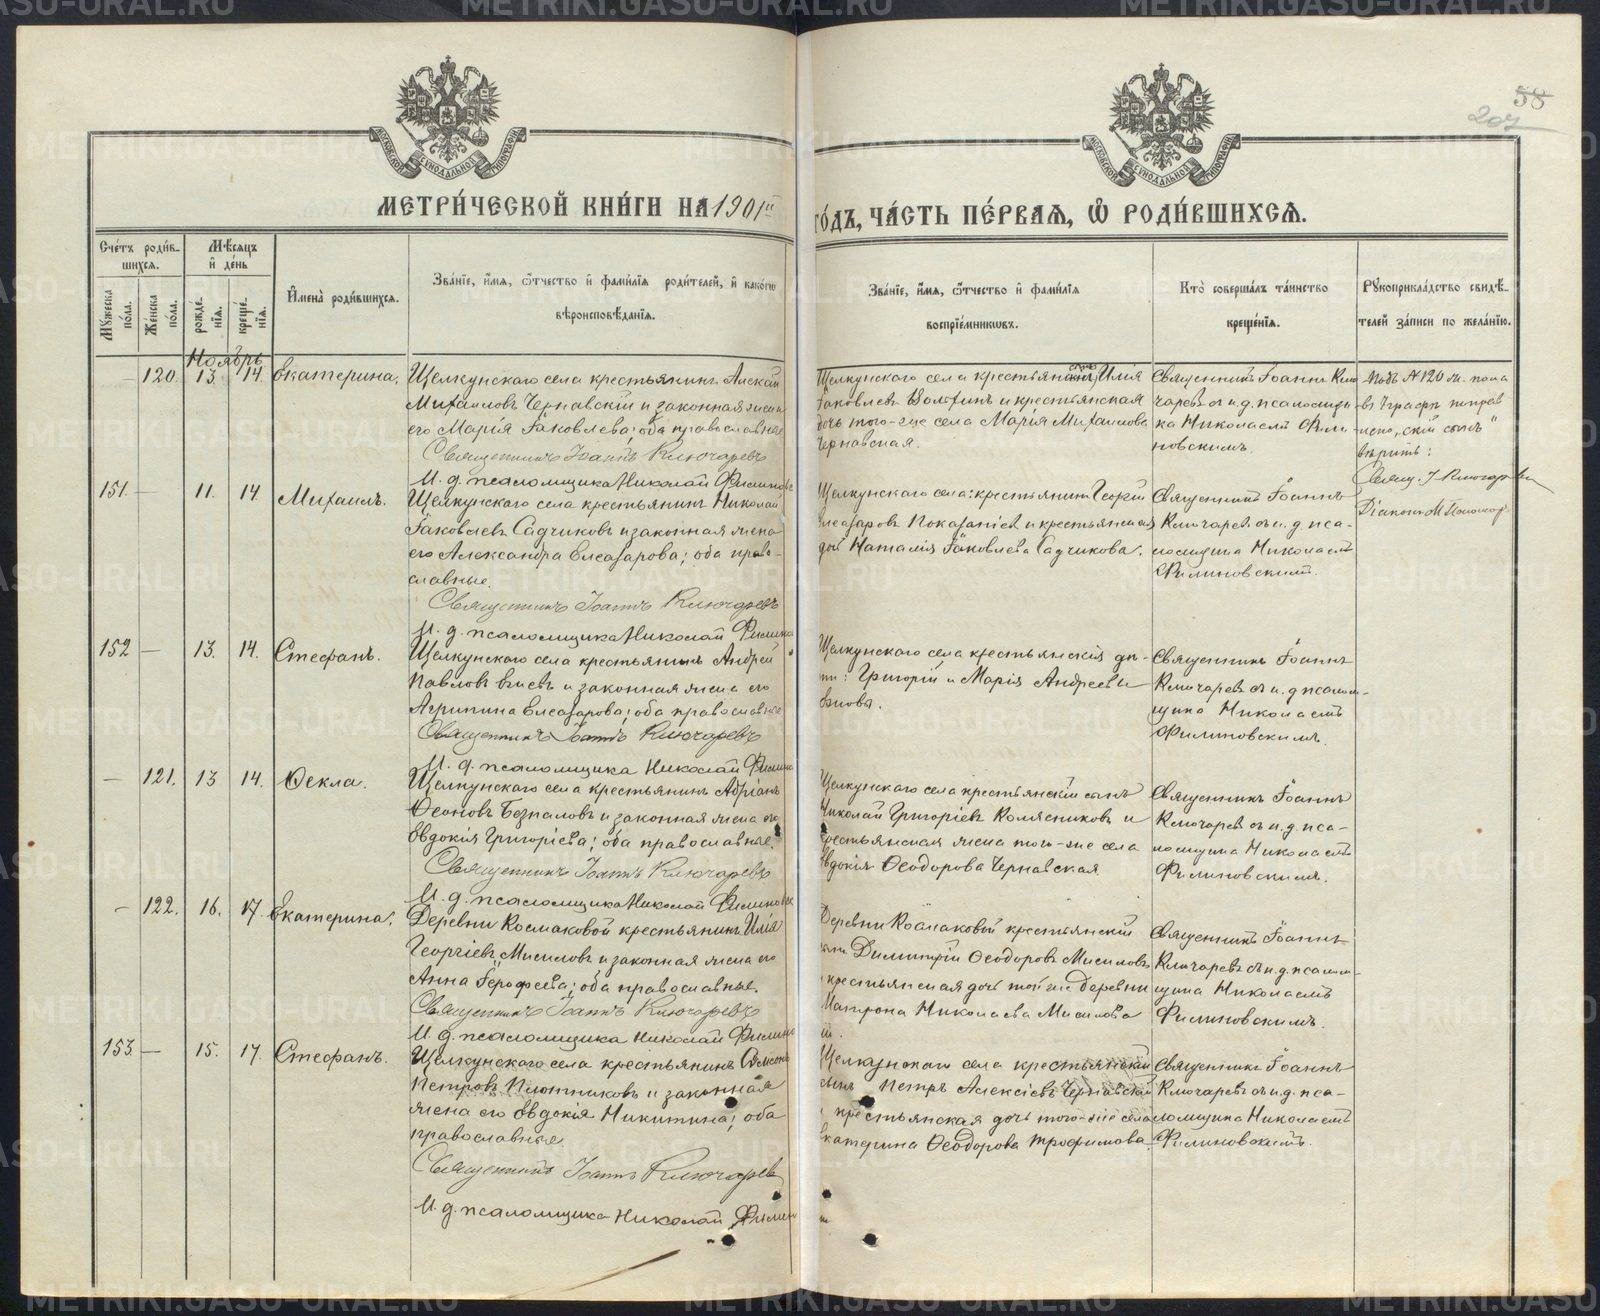 58
207
МОСКОВСКОЙ СѴНОДАЛЬНОЙ ТИПОГРАФІИ
МОСКОВСКОЙ СѴНОДАЛЬНОЙ ТИПОГРАФІИ
МЕТРИ́ЧЕСКОЙ КНИ́ГИ НА 1901й
ГО́ДЪ, ЧА́СТЬ ПЕ́РВАѦ, Ѡ҆ РОДИ́ВШИХСѦ.
Сче́тъ роди́в-
шихсѧ.
Мѹ́жеска по́ла.
Же́нска по́ла.
Мѣ́сѧцъ
и҆ де́нь
рожде́-нїѧ.
креще́-нїѧ.
И҆мена̀ роди́вшихсѧ.
Зва́нїе, и҆́мѧ, ѻ҆́тчество и҆ фами́лїѧ роди́телей, и҆ како́гѡ
вѣроисповѣ́данїѧ.
Зва́нїе, и҆́мѧ, ѻ҆́тчество и҆ фами́лїѧ
воспрїе́мникѡвъ.
Кто̀ соверша́лъ та́инство
креще́нїѧ.
Рѹкоприкла́дство свидѣ́-
телей за́писи по жела́нїю.
Ноябрь
120. 13. 14. Екатерина.
Щелкунскаго села крестьянинъ Алексѣй
Михаиловъ Чернавскій и законная жена
его Марія Іаковлева; оба православные
Священникъ Іоаннъ Ключаревъ
И. д. псаломщика Николай Филиновс
Щелкунскаго села крестьянинъ Илія
Іаковлевъ и крестьянская
дочь того-же села Марія Михаилова
Чернавская.
Священникъ Іоаннъ Клю-
чаревъ съ и. д. псаломщи-
ка Николаемъ Фили-
новскимъ.
Подъ № 120 ж. пола
въ графѣ поправ-
лено „скій сынъ“
вѣрить:
Свящ. І Ключаревъ
Діаконъ
151. — 11. 14. Михаилъ.
Щелкунскаго села крестьянинъ Николай
Іаковлевъ Садчиковъ и законная жена
его Александра Елеазарова; оба право-
славные.
Священникъ Іоаннъ Ключаревъ
И. д. псаломщика Николай Филино
Щелкунскаго села: крестьянинъ Георгій
Елеазаровъ и крестьянская
дочь Наталія Іаковлева Садчикова.
Священникъ Іоаннъ
Ключаревъ съ и. д. пса-
ломщика Николаемъ
Филиновскимъ.
152 — 13. 14. Стефанъ.
Щелкунскаго села крестьянинъ Андрей
Павловъ и законная жена его
Агрипина Елеазарова; оба православные
Священникъ Іоаннъ Ключаревъ
И. д. псаломщика Николай Филино
Щелкунскаго села крестьянскія дѣ-
ти: Григорій и Марія Андреевы
Священникъ Іоаннъ
Ключаревъ съ и. д. псалом-
щика Николаемъ
Филиновскимъ.
— 121. 13 14. Ѳекла.
Щелкунскаго села крестьянинъ Адріанъ
Ѳеоновъ Безпаловъ и законная жена его
Евдокія Григоріева; оба православные.
Священникъ Іоаннъ Ключаревъ
И. д. псаломщика Николай Филиновск
Щелкунскаго села крестьянскій сынъ
Николай Григоріевъ Колясниковъ и
крестьянская жена того-же села
Евдокія Ѳеодорова Чернавская
Священникъ Іоаннъ
Ключаревъ съ и. д. пса-
ломщика Николаемъ
Филиновскимъ.
— 122. 16. 17. Екатерина.
Деревни Космаковой крестьянинъ Илія
Георгіевъ Мисиловъ и законная жена его
Анна Іерофеева; оба православные.
Священникъ Іоаннъ Ключаревъ
И. д. псаломщика Николай Филино
Деревни Космаковой крестьянскій
сынъ Димитрій Ѳеодоровъ Мисиловъ
и крестьянская дочь той же деревни
Матрона Николаева Мисилова
Священникъ Іоаннъ
Ключаревъ съ и. д. псалом-
щика Николаемъ
Филиновскимъ.
153. — 15. 17. Стефанъ.
Щелкунскаго села крестьянинъ
Петровъ Плотниковъ и законная
жена его Евдокія Никитина; оба
православные.
Священникъ Іоаннъ Ключарев
И. д. псаломщика Николай Филин
Щелкунскаго села крестьянскій
сынъ Петръ Алексіевъ Чернавскій
и крестьянская дочь того-же села
Екатерина Ѳеодорова Трофимова.
Священникъ Іоаннъ
Ключаревъ съ и. д. пса-
ломщика Николаемъ
Филиновскимъ.
METRIKI.GASU-URAL.RU